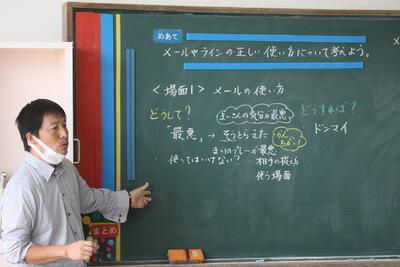 めあて
メールやラインの正しい使い方について考えよう。
＜場面1＞ メールの使い方
どうして?
ぼいさんの気分が最悪
どうすれば?
「最悪」→そうとらえた
かんちがい!
ドンマイ
まりのプレーが最悪
使ってはいけない? … 相手の捉え方
使う場面
まとめ